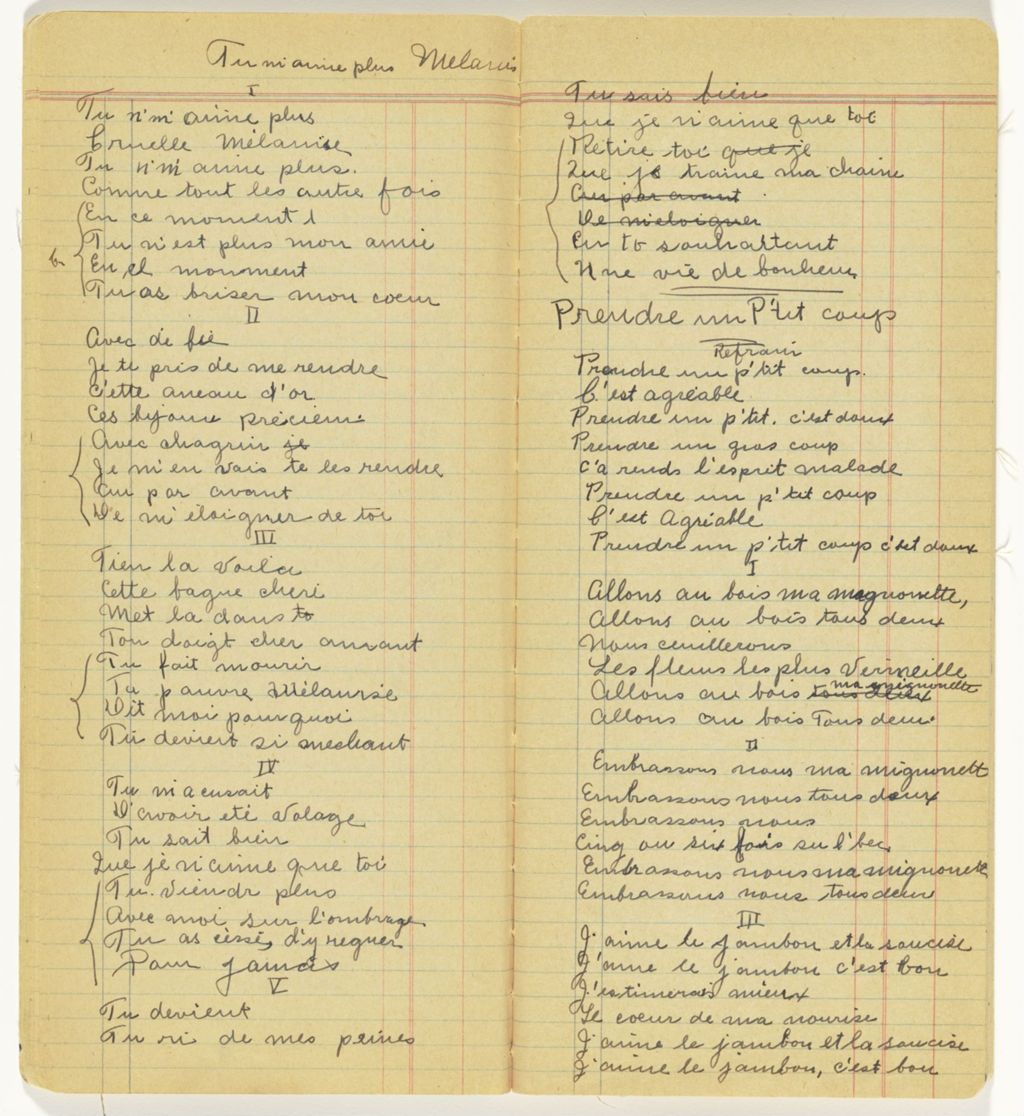 Tu m'aime plus Mélanis
I
Tu n'm' aime plus
Cruelle Mélanise
Tu n'm' aime plus.
Comme tout les autre fois
En ce moment
Tu n'est plus mon amie
b. En cl monment
Tu as briser mon coeur
II
Avec de
Je te pris de me rendre
C'ette aneau d'or
Ces bijoux précieux
Avec chagrin je
Je m'en vais te les rendre
Au par avant
De m'éloigner de toi
III
Tien la voila
Cette bague cheri
Met la dans to
Ton doigt cher amant
Tu fait mourir
Ta pauvre Mélanise
Dit moi pourquoi
Tu devient si mechant
IV
Tu m'acusait
D'avoir eté Volage
Tu sait bien
Que je n'aime que toi
Tu viendr plus
Avec moi sur l'ombrage
Tu as cèssé, d'y reguer
Pour jamais
V
Tu devient
Tu ri de mes peines
Tu sais bien
Que je n'aime que toi
Retire toi que je
Que je traine ma chaine
Au par avant
De m'eloigner
En te souhaitant
Une vie de bonheur
Prendre un P'tit coup
Refrain
Prendre un p'tit coup.
C'est agréable
Prendre un p'tit. c'est doux
Prendre un gros coup
C'a rends l'esprit malade
Prendre un p'tit coup
C'est Agréable
Prendre un p'tit coup c'est doux
I
Allons au bois ma mignonette,
Allons au bois tous deux
Nous cuillerons
Les fleurs les plus Vermeille
Allons au bois tous deux ma mignonette
Allons au bois Tous deux
II
Embrassons nous ma mignonett
Embrassons nous tous deux
Embrassons nous
Cinq ou six fois su l'bec
Embrassons nous ma mignonette
Embrassons nous tous deux
III
J'aime le jambon et la saucise
J'aime le jambon c'est bon
J'estimerais mieux
Le coeur de ma nourise
J'aime le jambon et la saucise
J'aime le jambon, c'est bon